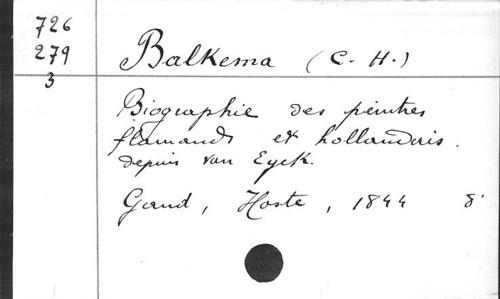 726
279
3
Balkema (C. H.)
Biographie des peintres
flamands et hollandais.
depuis van Eyck.
Gand, Hoste, 1844 8°